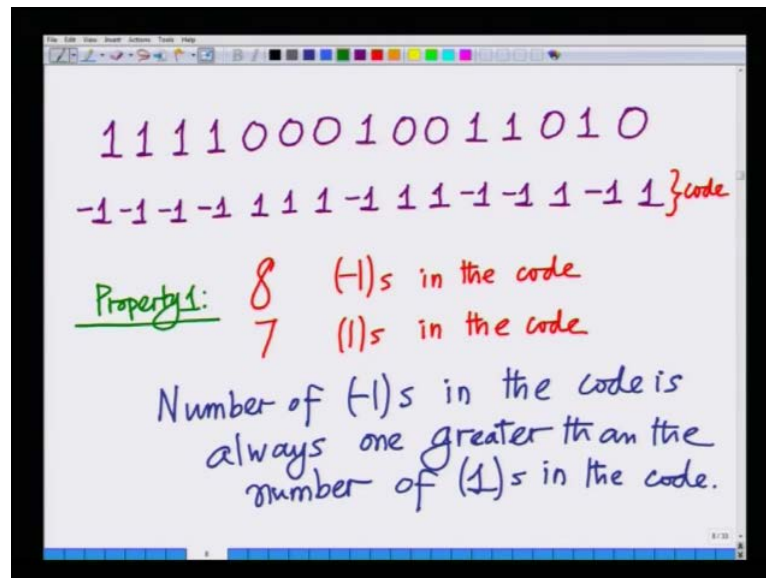 File Edit View Insert Actions Tools Help
1 1 1 1 0 0 0 1 0 0 1 1 0 1 0
-1 -1 -1 -1 1 1 1 -1 1 1 -1 -1 1 -1 1 } code
Property 1: 8 (-1)s in the code
7 (1)s in the code
Number of (-1)s in the code is
always one greater than the
number of (1)s in the code.
8/33
8